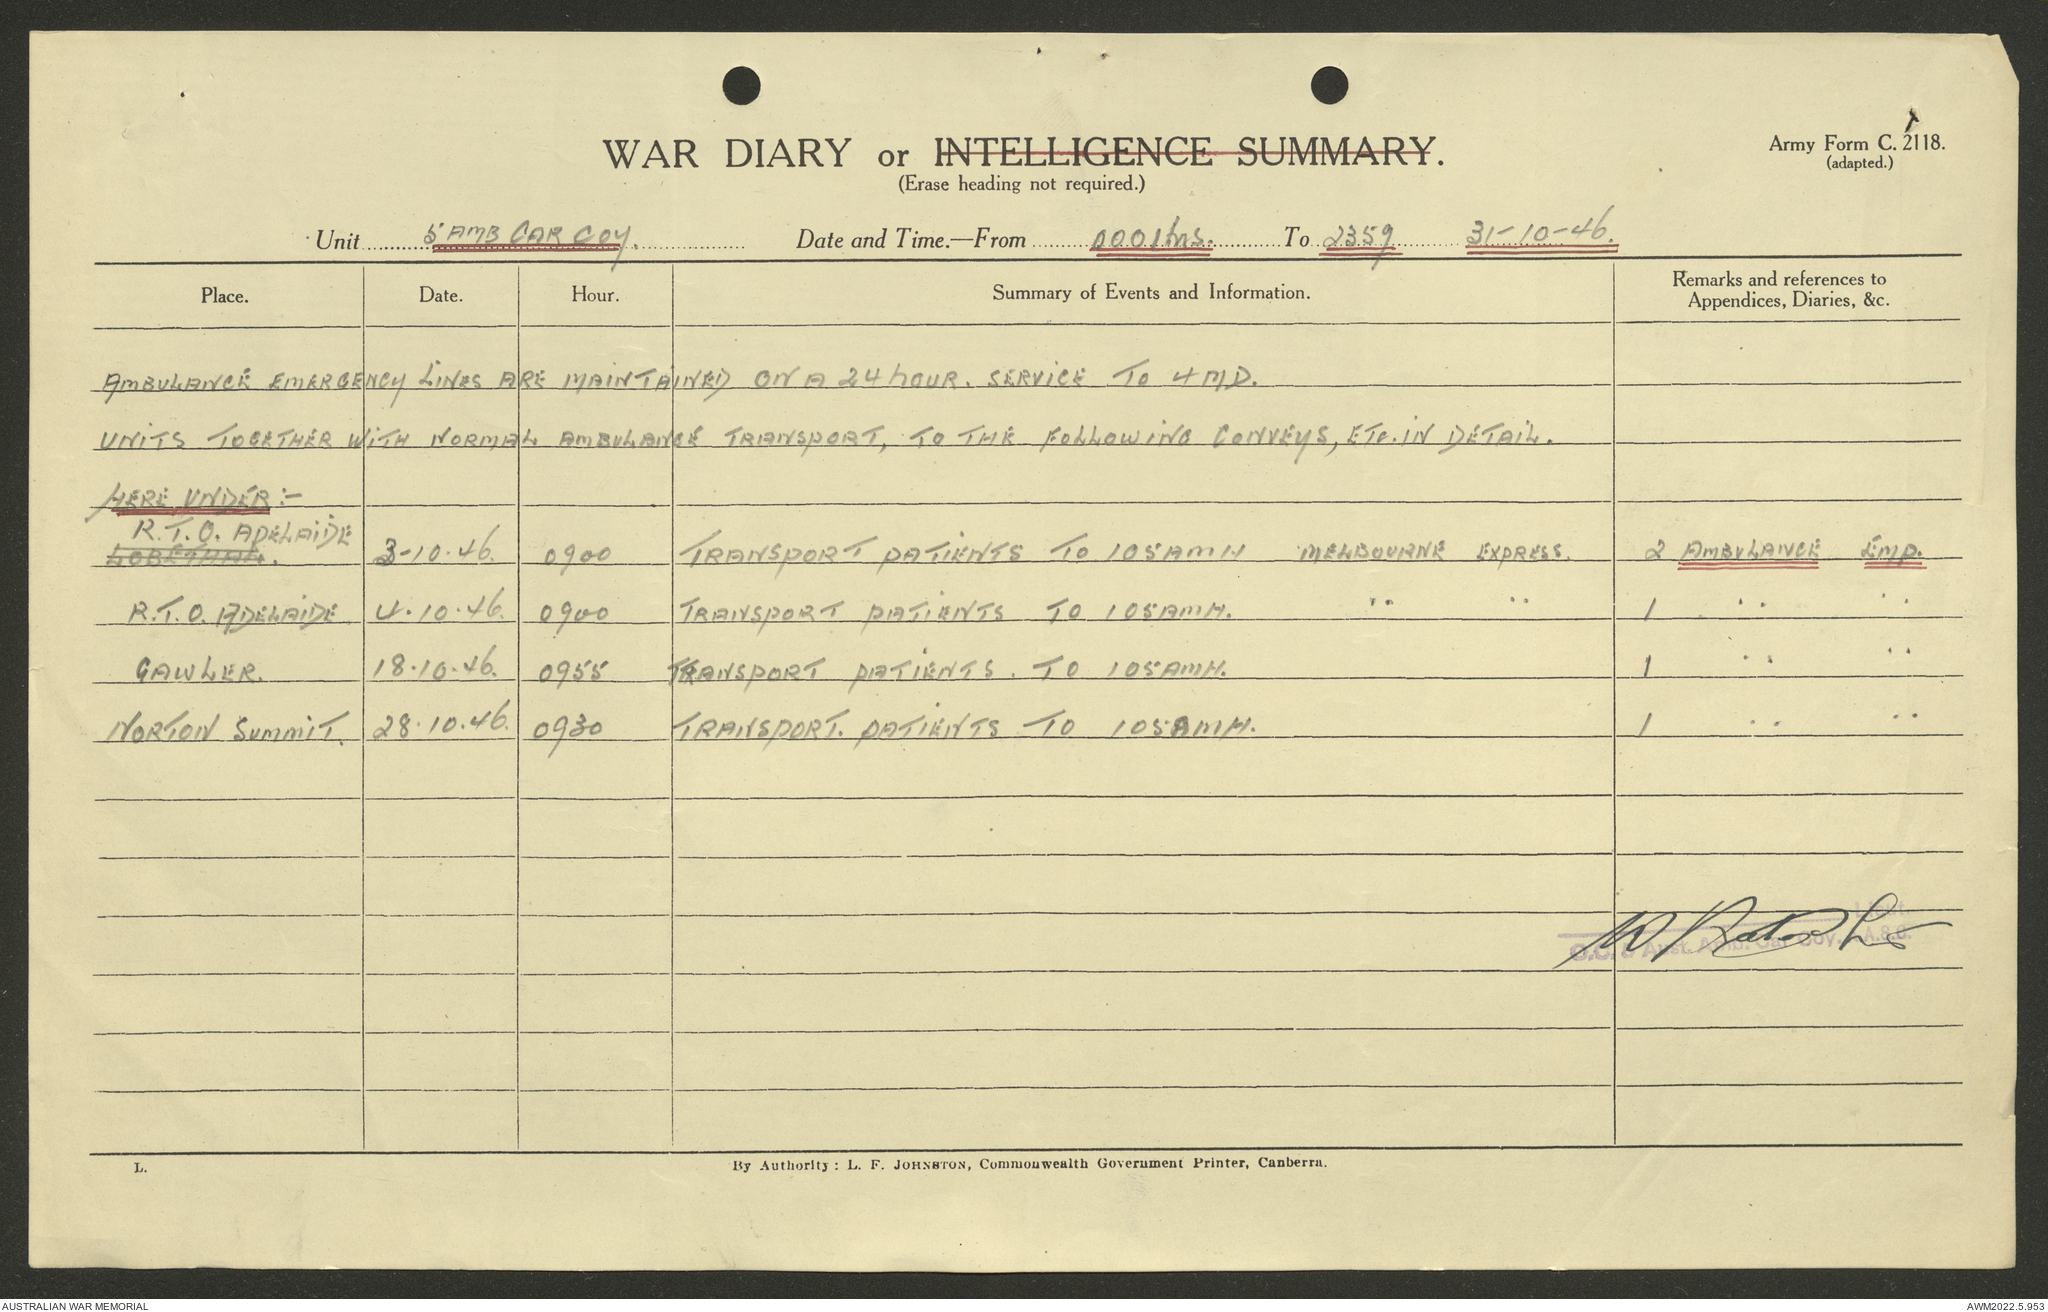 WAR DIARY or INTELLIGENCE SUMMARY.
(Erase heading not required.)
Army Form C. 2118.
(adapted.)
Unit 5 AMB CAR COY. Date and Time.—From 0001hrs. To 2359 31-10-46.
Place. Date. Hour. Summary of Events and Information. Remarks and references to Appendices, Diaries, &c.
AMBULANCE EMERGENCY LINES ARE MAINTAINED ON A 24 hOUR. SERVICE TO 4 MD.
UNITS TOGETHER WITH NORMAL AMBULANCE TRANSPORT, TO THE FOLLOWING CONVEYS, ETC. IN DETAIL.
HERE UNDER:-
R.T.O. ADELAIDE
LOBETHAL. 3-10-46. 0900 TRANSPORT PATIENTS TO 105AMH MELBOURNE EXPRESS. 2 AMBULANCE EMP.
R.T.O. ADELAIDE 4-10-46. 0900 TRANSPORT PATIENTS TO 105AMH. " " 1 " "
GAWLER. 18-10-46. 0955 TRANSPORT PATIENTS. TO 105AMH. 1 " "
NORTON SUMMIT. 28.10.46. 0930 TRANSPORT. PATIENTS TO 105AMH. 1 " "
Lieut.
O.C. 5 Aust. Amb. Car Coy. A.A.S.C.
L. By Authority: L. F. JOHNSTON, Commonwealth Government Printer, Canberra.
AUSTRALIAN WAR MEMORIAL AWM2022.5.953